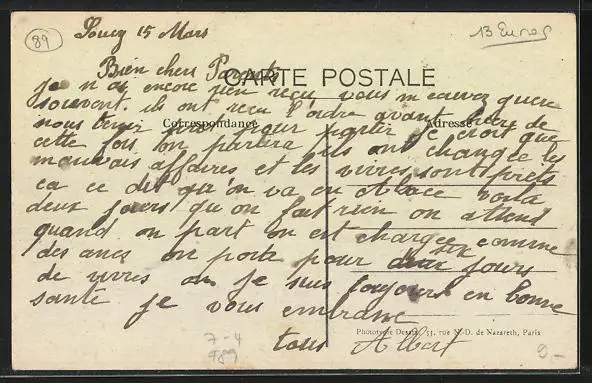 89
13 Euros
Soucy 15 Mars
Bien chers Parents
CARTE POSTALE
je n ai encore rien reçu vous m ecrivez guere
souvent. ils ont reçu l'ordre avant hier de
Correspondance
Adresse
nous tenir pour partir je crois que
cette fois on partira ils ont changee les
mauvais affaires et les vivres sont prets
ca ce dit qu'on va en Alsace voila
deux jours qu'on fait rien on attend
quand on part on est chargee comme
des anes on porte pour six jours
de vivres je suis toujours en bonne
santé je vous embrasse
tous Albert
Phototypie Desaix, 33, rue N.-D. de Nazareth, Paris
7-4
989
9-